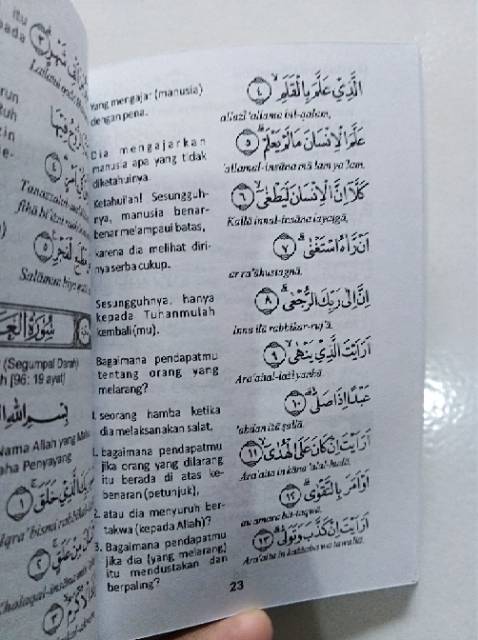 itu
pada
٣
Lailatul
run
ruh
zin
٤
Tanazzalul
fihā
٥
Salāmun
سُورَةُ الْعَلَقِ
(Segumpal Darah)
[96: 19 ayat]
بِسْمِ اللهِ
Nama Allah yang
Maha Penyayang
الَّذِيْ خَلَقَ
١
Iqra' bismi
مِنْ عَلَقٍ
٢
Khalaqal-insāna
٣
Yang mengajar (manusia)
dengan pena.
Dia mengajarkan
manusia apa yang tidak
diketahuinya.
Ketahuilah! Sesungguh-
nya, manusia benar-
benar melampaui batas,
karena dia melihat diri-
nya serba cukup.
Sesungguhnya, hanya
kepada Tuhanmulah
kembali(mu).
Bagaimana pendapatmu
tentang orang yang
melarang?
seorang hamba ketika
dia melaksanakan salat,
bagaimana pendapatmu
jika orang yang dilarang
itu berada di atas ke-
benaran (petunjuk),
2. atau dia menyuruh ber-
takwa (kepada Allah)?
3. Bagaimana pendapatmu
jika dia (yang melarang)
itu mendustakan dan
berpaling?
الَّذِيْ عَلَّمَ بِالْقَلَمِ ٤
allażī 'allama bil-qalam,
عَلَّمَ الْاِنْسَانَ مَا لَمْ يَعْلَمْ ٥
'allamal-insāna mā lam ya'lam.
كَلَّآ اِنَّ الْاِنْسَانَ لَيَطْغٰى ٦
Kallā innal-insāna layaṭgā,
اَنْ رَّاٰهُ اسْتَغْنٰى ٧
ar ra'āhustagnā.
اِنَّ اِلٰى رَبِّكَ الرُّجْعٰى ٨
Inna ilā rabbikar-ruj'ā.
اَرَاَيْتَ الَّذِيْ يَنْهٰى ٩
Ara'aital-lażī yanhā.
عَبْدًا اِذَا صَلّٰى ١٠
'abdan iżā ṣallā.
اَرَاَيْتَ اِنْ كَانَ عَلَى الْهُدٰى ١١
Ara'aita in kāna 'alal-hudā.
اَوْ اَمَرَ بِالتَّقْوٰى ١٢
au amara bit-taqwā.
اَرَاَيْتَ اِنْ كَذَّبَ وَتَوَلّٰى ١٣
Ara'aita in każżaba wa tawallā.
23